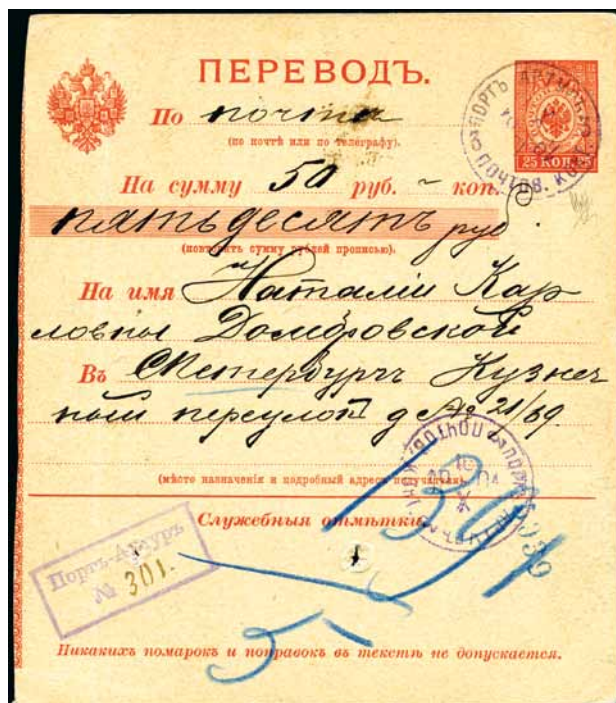 ПЕРЕВОДЪ.
По почта
(по почтѣ или по телеграфу).
25 КОП. 25
ПОРТЪ АРТУРЪ
На сумму 50 руб. ~ коп.
пятьдесятъ руб
(повторить сумму рублей прописью).
На имя Наталіи Кар
ловны Домбровской
Въ СПетербургъ Кузнеч
ный переулокъ д № 21/69
(мѣсто назначенія и подробный адресъ получателя).
Служебныя отмѣтки.
Портъ-Артуръ
№ 301.
5
Никакихъ помарокъ и поправокъ въ текстѣ не допускается.